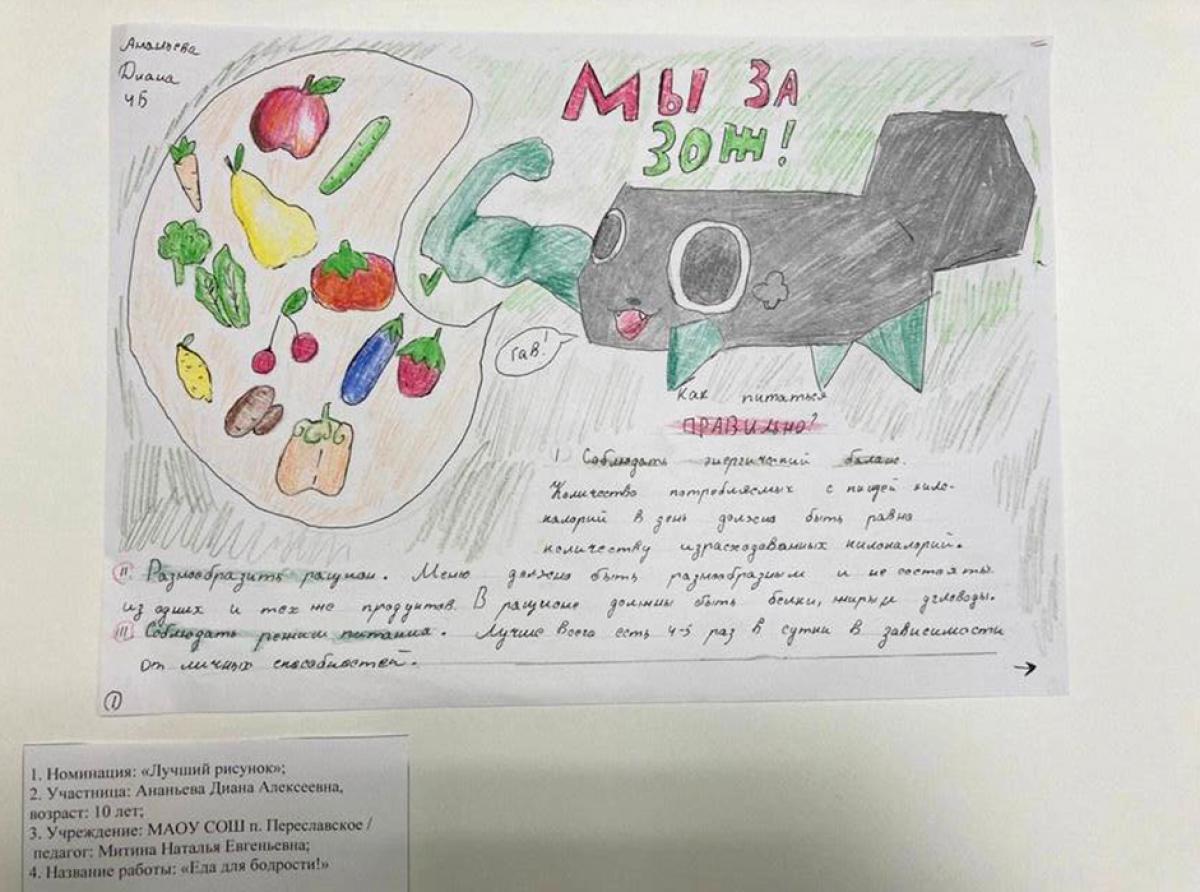 Ананьева
Диана
4Б
МЫ ЗА
ЗОЖ!
гав!
Как питаться
ПРАВИЛЬНО?
I Соблюдать энергический баланс.
Количество потребляемых с пищей кило-
калорий в день должно быть равно
количеству израсходованных килокалорий.
II. Разнообразить рацион. Меню должно быть разнообразным и не состоять
из одних и тех же продуктов. В рационе должны быть белки, жиры и углеводы.
III Соблюдать режим питания. Лучше всего есть 4-5 раз в сутки в зависимости
от личных способностей.
→
1
1. Номинация: «Лучший рисунок»;
2. Участница: Ананьева Диана Алексеевна,
возраст: 10 лет;
3. Учреждение: МАОУ СОШ п. Переславское /
педагог: Митина Наталья Евгеньевна;
4. Название работы: «Еда для бодрости!»